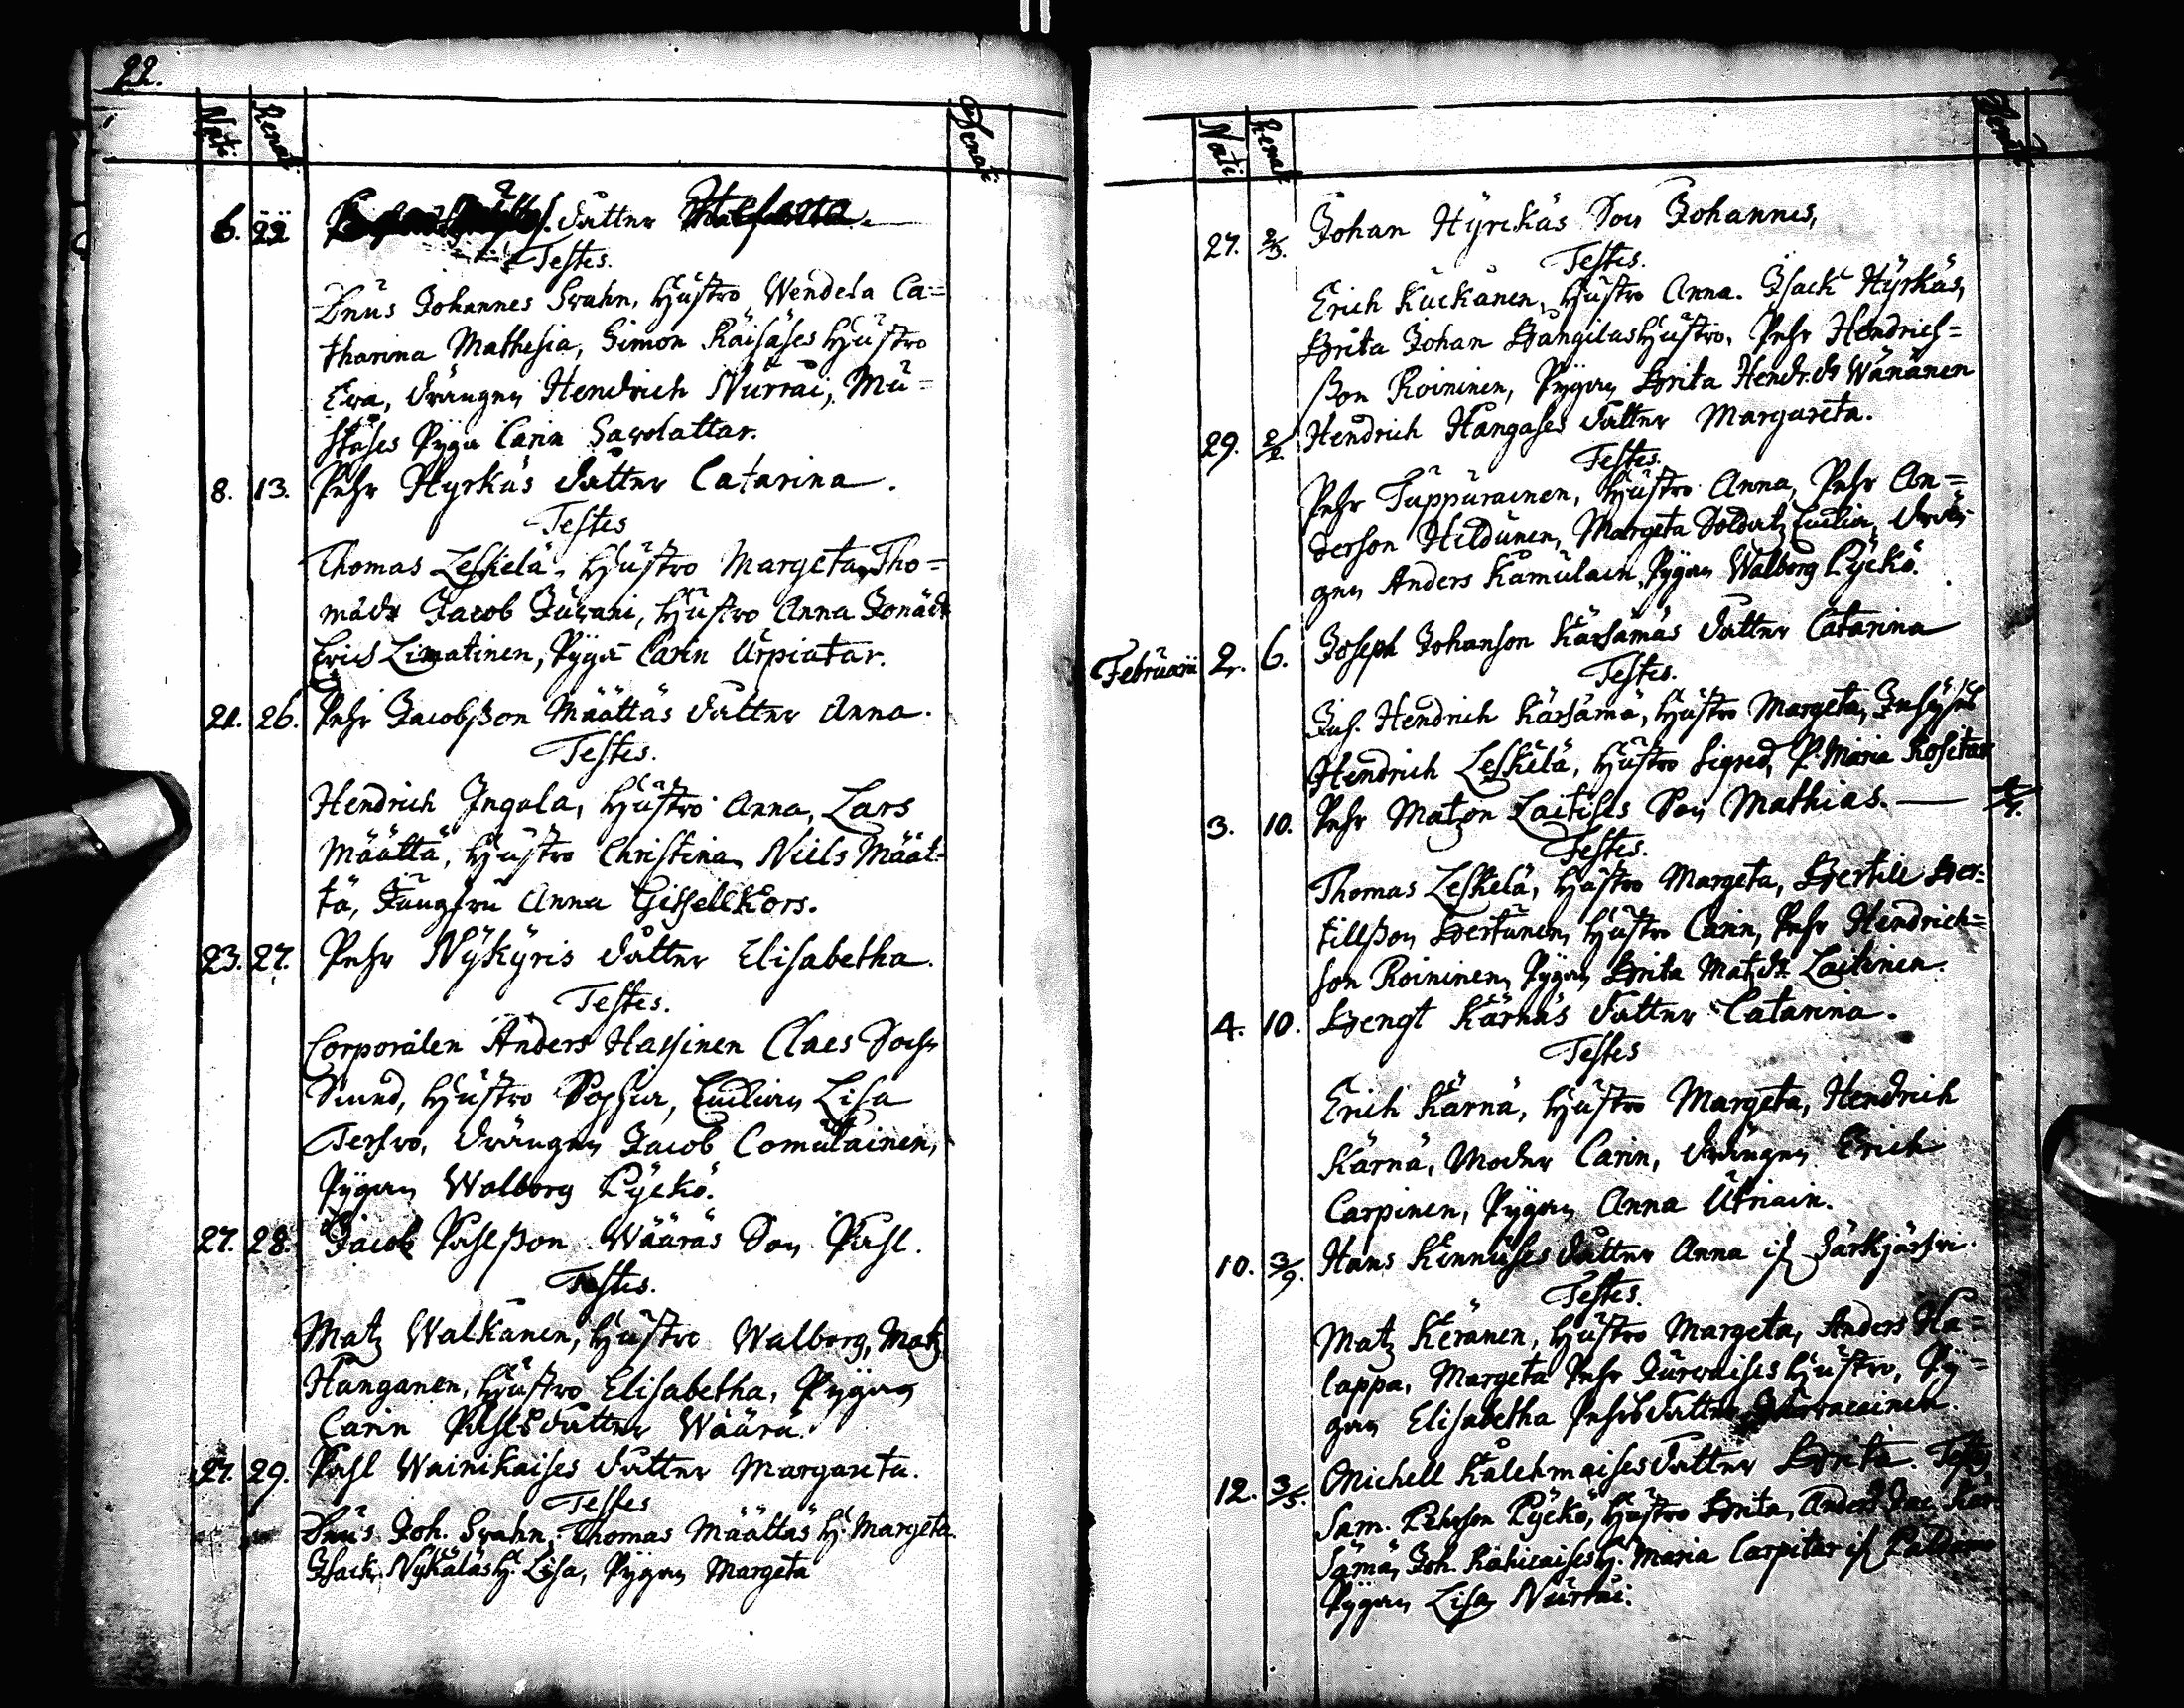 22.
Nati Renati Denati
6. 22 dotter
Testes.
Dnus Johannes Svahn, Hustro Wendela Ca=
tharina Mathesia, Simon Räisäses Hustro
Eva, Drängen Hendrich Nurrai, Mu=
stases Pyga Carin Savolattar.
8. 13. Pehr Hyrkäs dotter Catarina.
Testes
Thomas Leskelä, Hustro Margeta Tho=
mädr Jacob Juvani, Hustro Anna Jonädr
Erich Limatinen, Pyga Carin Urpiatar.
21. 26. Pehr Jacobsson Määttäs dotter Anna.
Testes.
Hendrich Ingala, Hustro Anna, Lars
Määttä, Hustro Christina, Niels Määt=
tä, Jungfru Anna Gissellkors.
23. 27. Pehr Nykyris dotter Elisabetha.
Testes.
Corporalen Anders Hassinen Claes
Sund, Hustro Sophia, Enckian Lisa
Terfvo, Drängen Jacob Comulainen,
Pygan Walborg Pyckö.
27. 28. Jacob Påhlsson Wääräs Son Påhl.
Testes.
Matz Walkanen, Hustro Walborg, Matz
Hanganen, Hustro Elisabetha, Pygan
Carin Påhlsdotter Wäärä.
27. 29. Påhl Wainikaises dotter Margareta.
Testes
Dnus Joh. Svahn, Thomas Määttäs H. Margeta.
Isack Nykäläs H. Lisa, Pygan Margeta
Nati Renati Denati
27. 2/3. Johan Hyrckäs Son Johannes,
Testes.
Erich Kuckanen, Hustro Anna. Isack Hyrkäs,
Brita Johan Bångilas Hustro, Pehr Hendrich=
sson Roininen, Pygan Brita Hendr.dr Wänänen
29. 2/2. Hendrich Hangases dotter Margareta.
Testes.
Pehr Tuppurainen, Hustro Anna, Pehr An=
derson Hildunen, Margeta Soldatz Enckia, Drän
gen Anders Kamulain, Pygan Walborg Pyckö.
Februarii 2. 6. Joseph Johanson Kärsämäs dotter Catarina
Testes.
Inh. Hendrich Kärsämä, Hustro Margeta, Inhyses
Hendrich Leskelä, Hustro Sigred, P. Maria Rositar
3. 10. Pehr Matzon Laitises Son Mathias. —
Testes.
Thomas Leskelä, Hustro Margeta, Bertill Ber=
tillsson Bertunen, Hustro Carin, Pehr Hendrich=
son Roininen, Pygan Brita Matzdr Laitinen.
4. 10. Bengt Kärnäs dotter Catarina.
Testes
Erich Kärnä, Hustro Margeta, Hendrich
Kärnä, Moder Carin, Drängen Erich
Carpinen, Pygan Anna Utriain.
10. 3/9. Hans Kinnuses dotter Anna if Särkjärfvi.
Testes.
Matz Keränen, Hustro Margeta, Anders Ha=
lappa, Margeta Pehr Jurvaises Hustro, Py=
gan Elisabetha Pehrsdotter
12. 3/5. Michell Kälckmaises dotter Brita. Testes
Sam. Pehrson Pyckö, Hustro Brita, Anders Jac. Kär
sämä, Joh. H. Maria Carpitar if Paldamo
Pygan Lisa Nurrai.